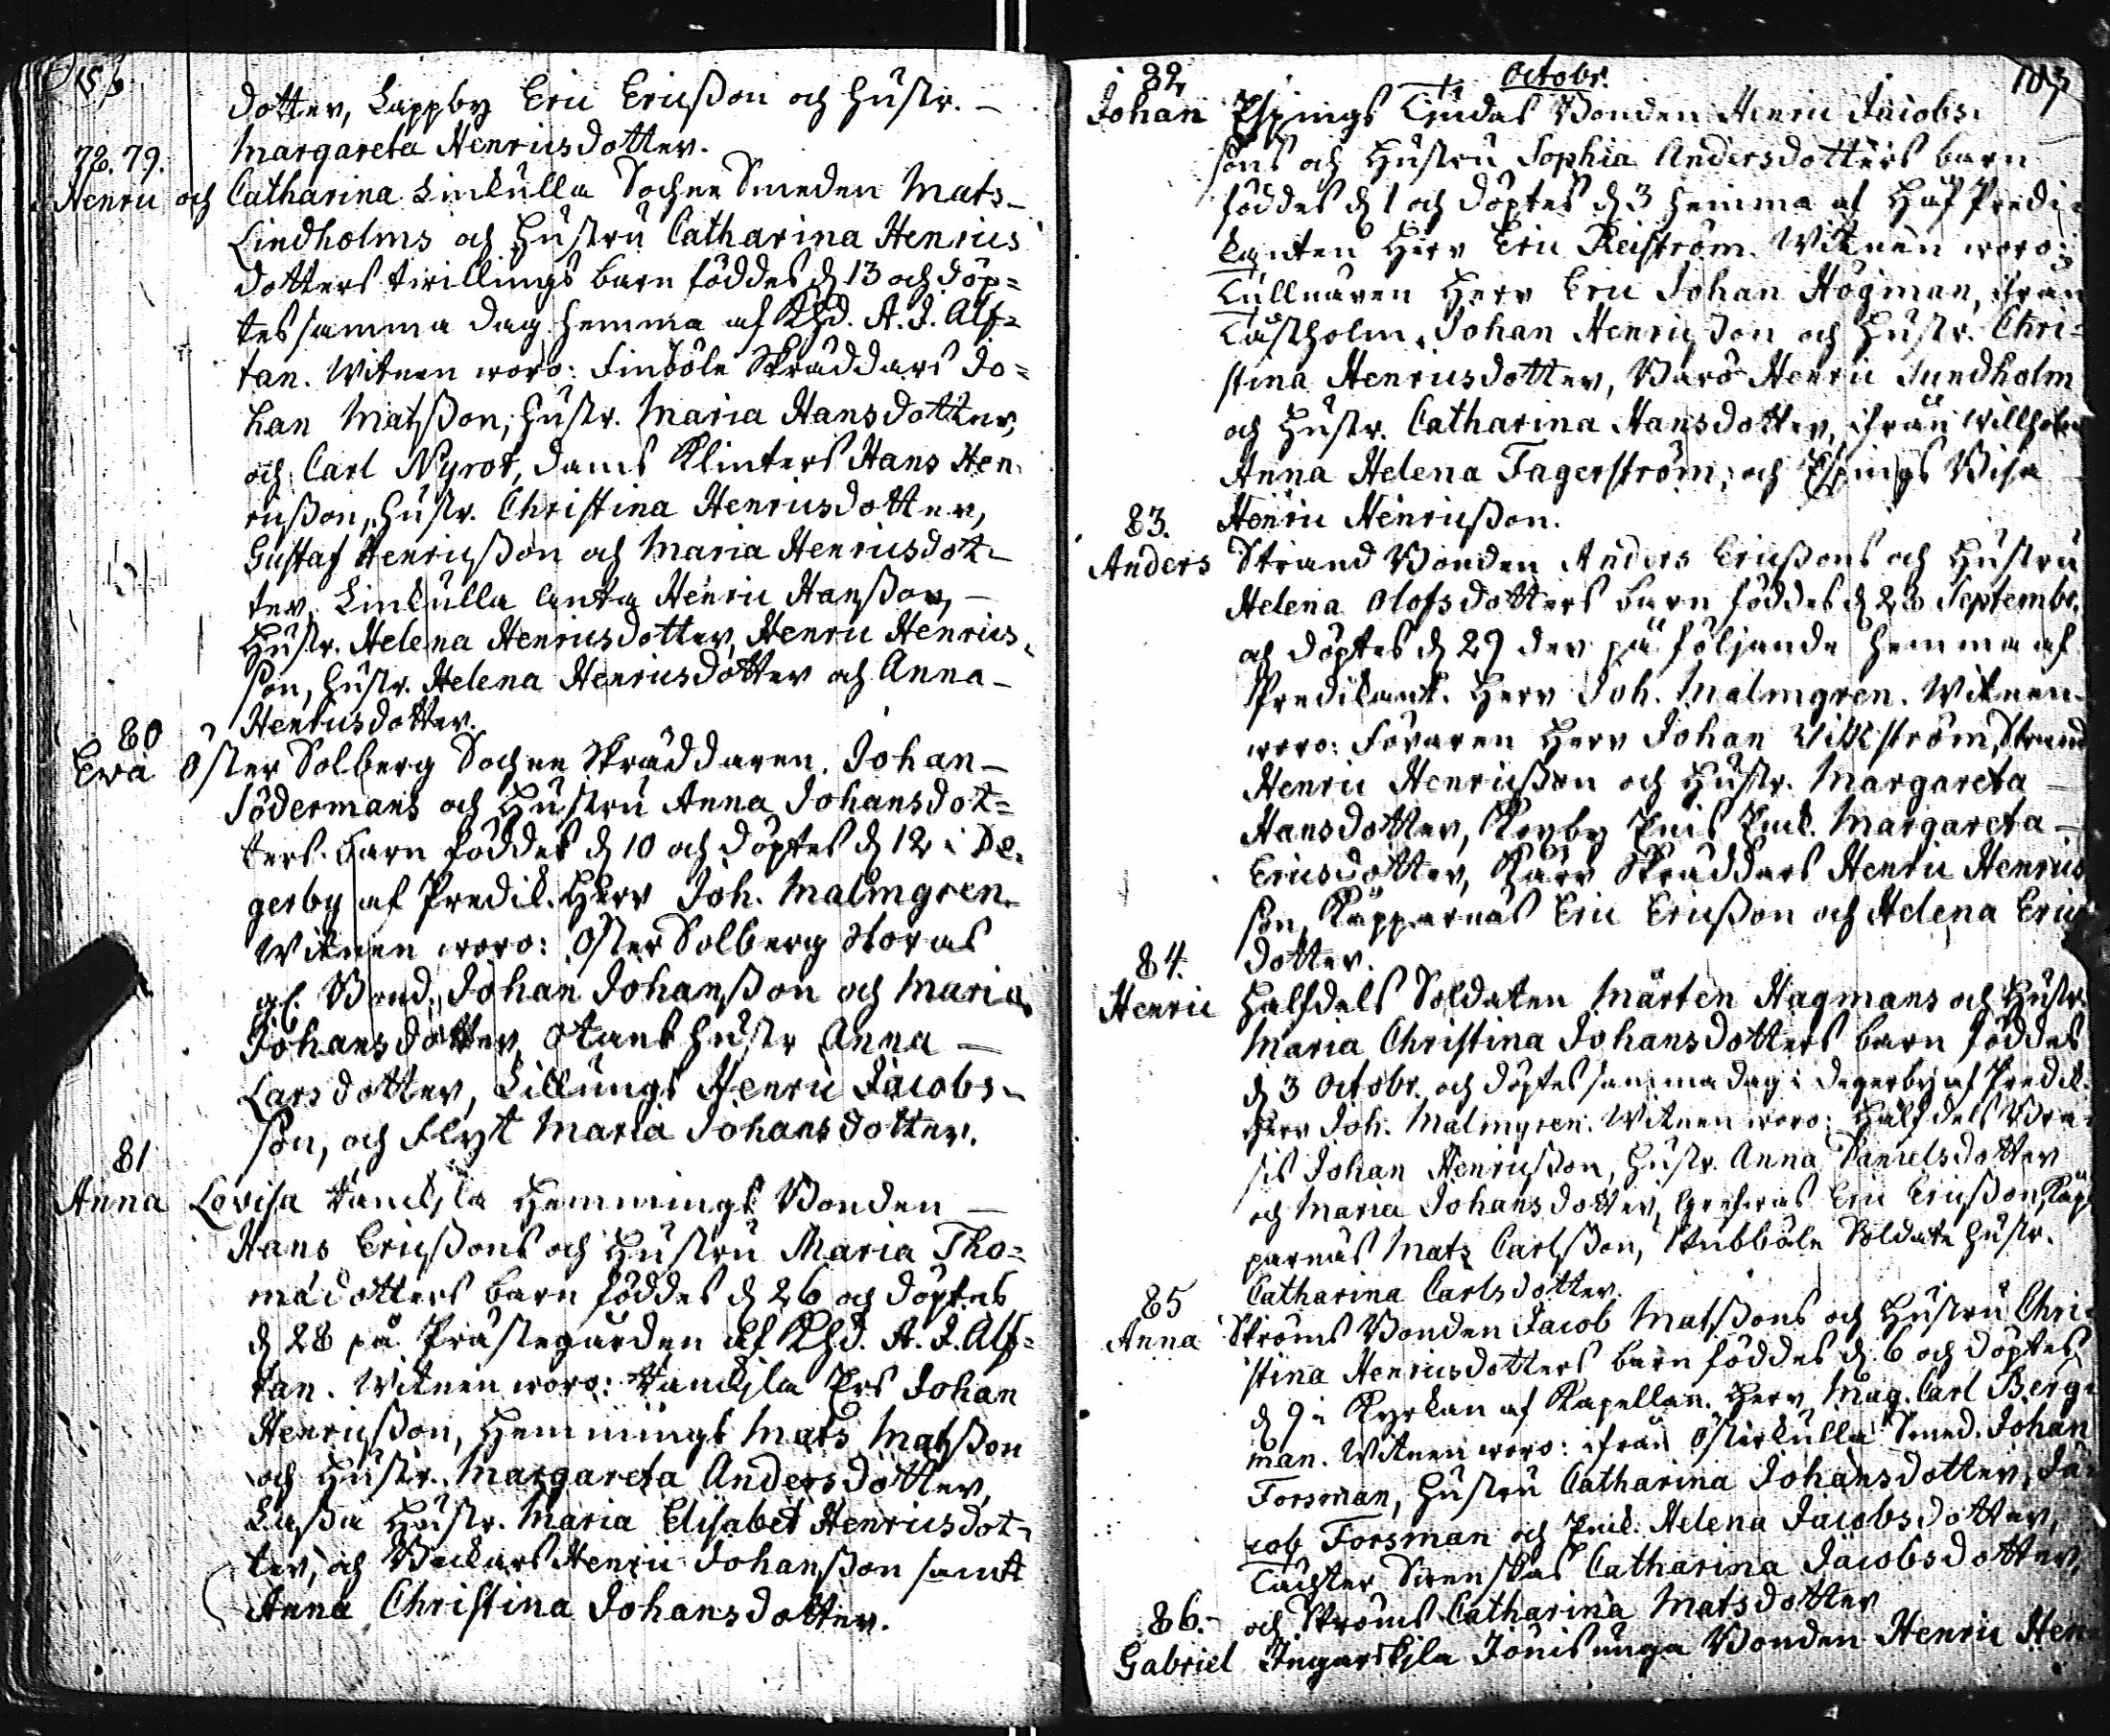 dotter, Lappby Eric Ericßon och Hustr. –
Margareta Henricsdotter.
78. 79.
Henric och Catharina Linkulla Sochne Smeden Mats
Lindholms och Hustru Catharina Henrics
dotters twillings barn föddes d 13 och döp=
tes samma dag hemma af Khd. A. J. Alf=
tan. Witnen woro: Finböle Skräddars Jo=
han Matsßon, Hustr. Maria Hansdotter,
och Carl Nyrot, Klinkers Hans Hen
ricßon, Hustr. Christina Henricsdotter,
Gustaf Henricßon och Maria Henricsdot=
ter, Linkulla Henric Hanßon, –
Hustr. Helena Henricsdotter, Henric Henrics
son, Hustr. Helena Henricsdotter och Anna –
Henricsdotter.
80
Ewa Öster Solberg Sochne Skräddaren Johan –
Södermans och Hustru Anna Johansdot=
ters barn föddes d 10 och döptes d 12 i De=
gerby af Predik. Herr Joh. Malmgren.
Witnen woro: Öster Solberg
gl. Bond. Johan Johanßon och Maria
Johansdotter, Hustr Anna –
Larsdotter, Lillungs Henric Jacobs=
son, och Flyt Maria Johansdotter.
81
Anna Lovisa Hemmings Bonden –
Hans Ericßons och Hustru Maria Tho=
mädotters barn föddes d 26 och döptes
d 28 på Prästegården af Khd. A. J. Alf=
tan. Witnen woro: Johan
Henricßon, Hemmings Mats Matsßon
och Hustr. Margareta Andersdotter,
Hustr. Maria Elisabet Henricsdot=
ter, och Henric Johanßon samt
Anna Christina Johansdotter.
82 Octobr. 183
Johan Espings Bonden Henric Jacobs
sons och Hustru Sophia Andersdotters barn
föddes d 1 och döptes d 3 hemma af Predi=
kanten Herr Eric Reiström. Witnen woro:
Tullnären Herr Eric Johan Högman, ifrån
Johan Henricßon och Hustr. Chri=
stina Henricsdotter, Barö Henric Sundholm
och Hustr. Catharina Hansdotter, ifrån
Anna Helena Fagerström, och Espings
Henric Henricßon.
83.
Anders Strand Bonden Anders Ericßons och Hustru
Helena Olofsdotters barn föddes d 28 Septembr.
och döptes d 29 der på följande hemma af
Predikant. Herr Joh. Malmgren. Witnen
woro: Herr Johan Wikström, Strand
Henric Henricßon och Hustr. Margareta –
Hansdotter, Pig. Margareta –
Ericsdotter, Skräddars Henric Henrics
son, Kopparnäs Eric Ericßon och Helena Erics
dotter.
84.
Henric Halfdels Soldaten Mårten Hagmans och Hustr.
Maria Christina Johansdotters barn föddes
d 3 Octobr. och döptes samma dag i Degerby af Predik.
Herr Joh. Malmgren. Witnen woro: Halfdels
Johan Henricßon, Hustr. Anna Danielsdotter
och Maria Johansdotter, Eric Ericßon, Kop=
parnäs Mats Carlßon, Stubböle Soldate Hustr.
Catharina Carlsdotter.
85
Anna Ströms Bonden Jacob Matsßons och Hustru Chri=
stina Henricsdotters barn föddes d. 6 och döptes
d 9 i Kyrkan af Kapellan. Herr Mag. Carl Berg=
man. Witnen woro: ifrån Österkulla Smed. Johan
Forsman, Hustru Catharina Johansdotter, Ja=
cob Forsman och Pig. Helena Jacobsdotter,
Täckter Swenskas Catharina Jacobsdotter,
och Ströms Catharina Matsdotter
86.
Gabriel Ingarskila Bonden Henric Hen=